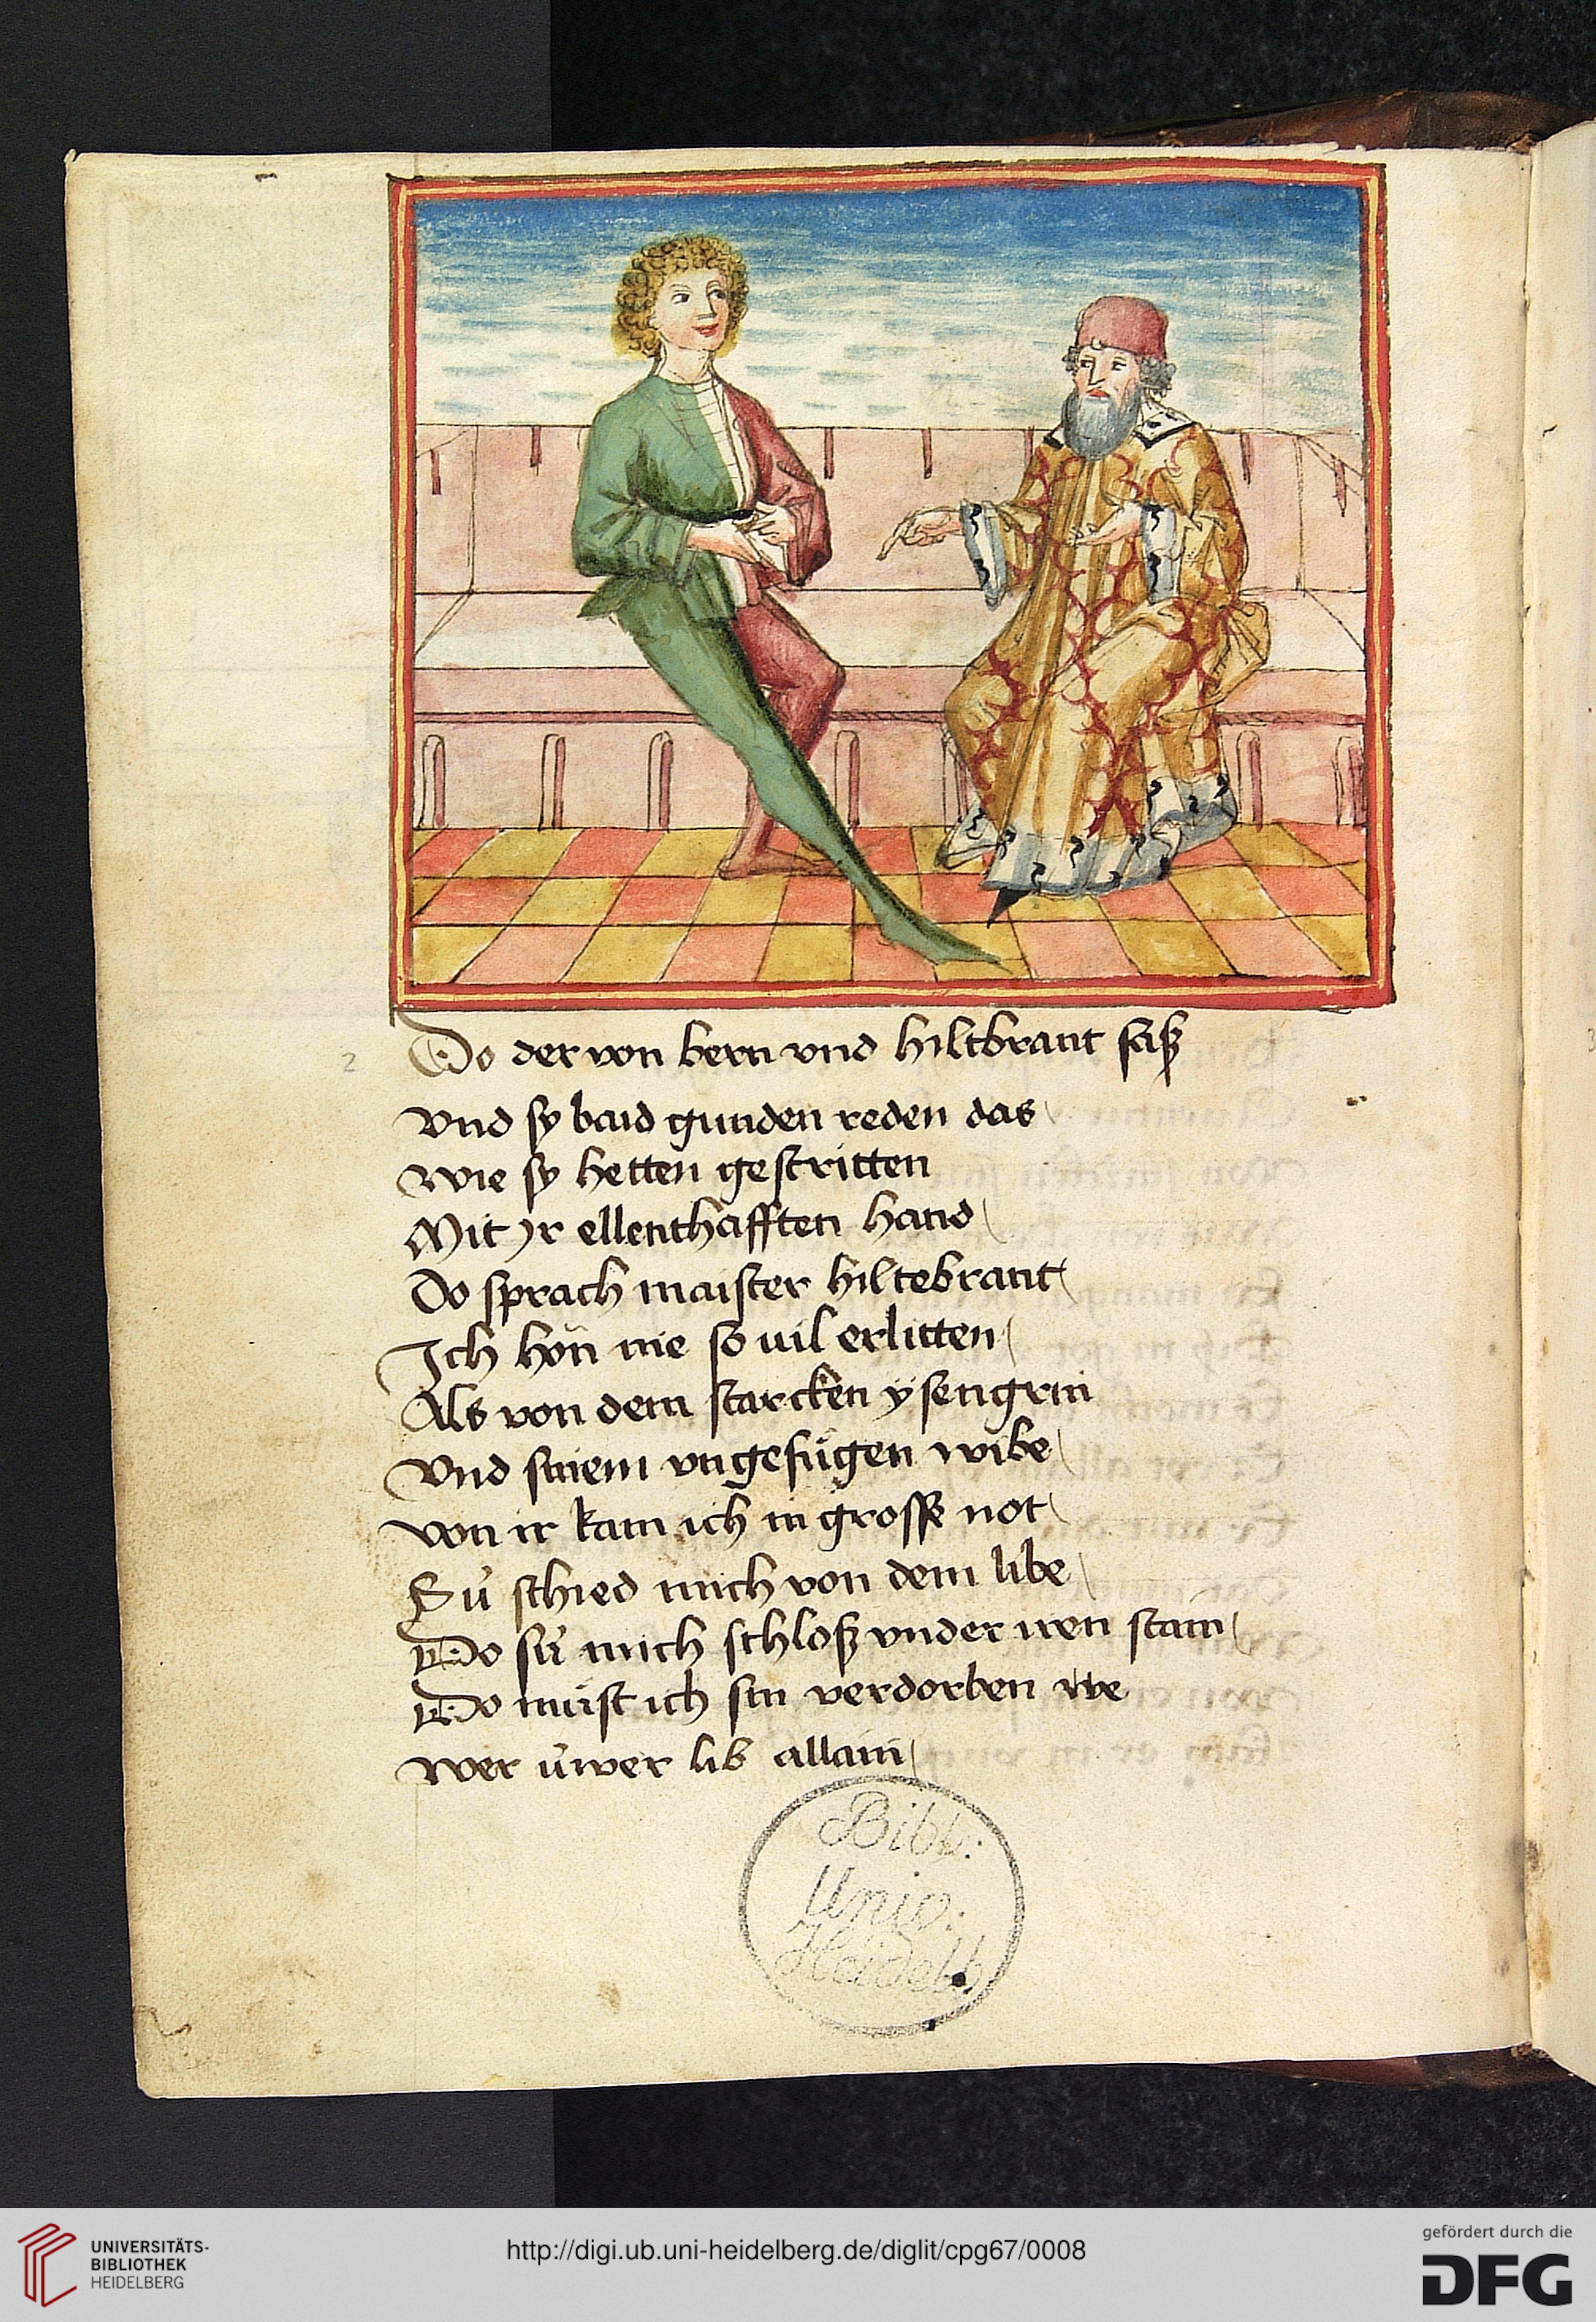 2
Do der von bern vnd hiltbrant saß
Vnd sy baid gunden reden das
Wie sy hetten gestritten
Mit yr ellenthafften hand
Do sprach maister hiltebrant
Ich hon nie so uil erlitten
Als von dem starcken ysengrin
Vnd sinem vngefügen wibe
von ir kam ich in grosse not
Sü schied mich von dem libe
Do sü mich schloß vnder iren stain
Do müst ich sin verdorben we
wer üwer lib allain
Bibl:
Univ:
Heidelb.
UNIVERSITÄTS-
BIBLIOTHEK
HEIDELBERG
http://digi.ub.uni-heidelberg.de/diglit/cpg67/0008
gefördert durch die
DFG